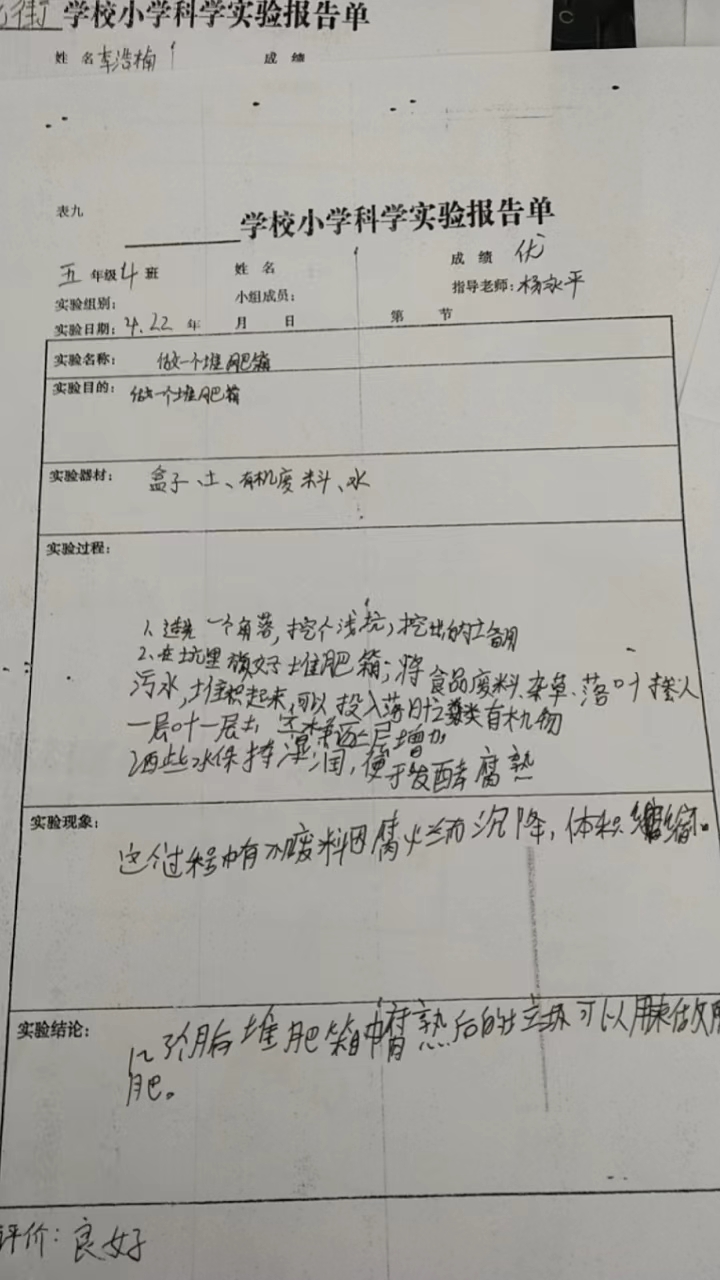 街 学校小学科学实验报告单
姓 名 李浩楠 成 绩
表九
学校小学科学实验报告单
五 年级 4 班 姓 名 成 绩 优
实验组别: 小组成员: 指导老师: 杨永平
实验日期: 4.22 年 月 日 第 节
实验名称: 做一个堆肥箱
实验目的: 做一个堆肥箱
实验器材: 盒子、土、有机废料、水
实验过程:
1、选 一个角落,挖个浅坑,挖出的土备用
2、在坑里 好堆肥箱;将食品废料、杂草、落叶
污水,堆积起来,可以投入落叶 类有机物
一层叶一层土, 层增加
洒些水保持湿润,便于发酵腐熟
实验现象:
这个过程中有 废料因腐 而沉降,体积 缩。
实验结论:
个月后堆肥箱中腐熟后的 可以用来做
肥。
评价: 良好